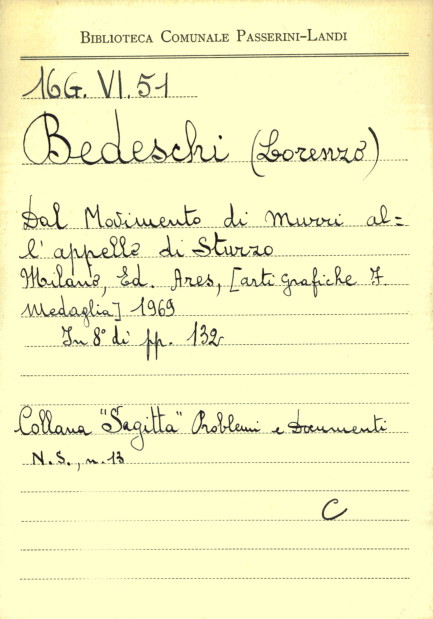 BIBLIOTECA COMUNALE PASSERINI-LANDI
16G. VI. 51
Bedeschi (Lorenzo)
Dal Movimento di Murri al=
l'appello di Sturzo
Milano, Ed. Ares, [arti grafiche F.
Medaglia] 1969
In 8° di pp. 132
Collana "Sagitta" Problemi e Documenti
N.S., n. 13
C